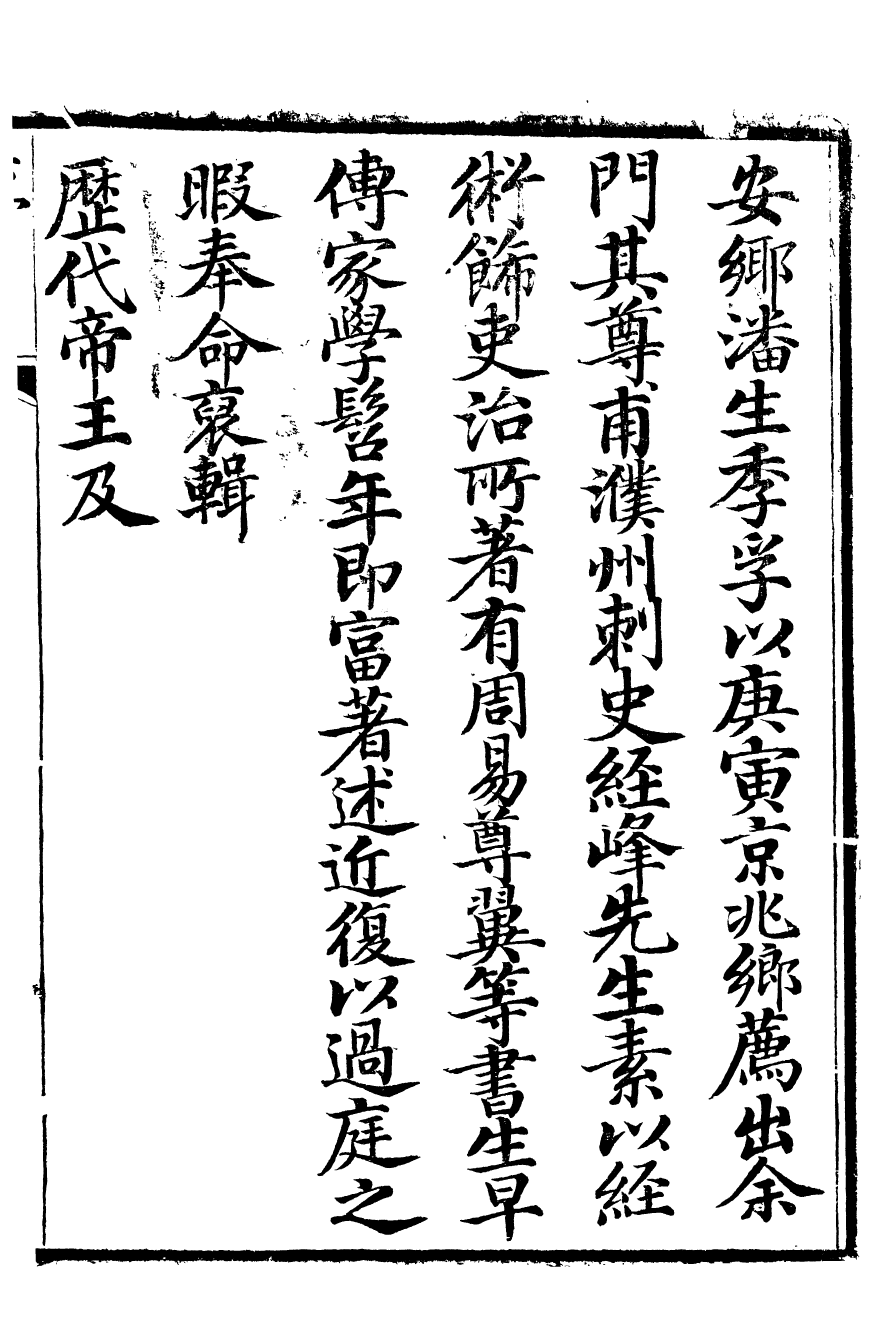 安鄉潘生季孚以庚寅京兆鄉薦出余
門其尊甫濮州刺史経峰先生素以経
術餙吏治所著有周易尊翼等書生早
傳家學髫年即富著述近復以過庭之
暇奉命裒輯
歴代帝王及